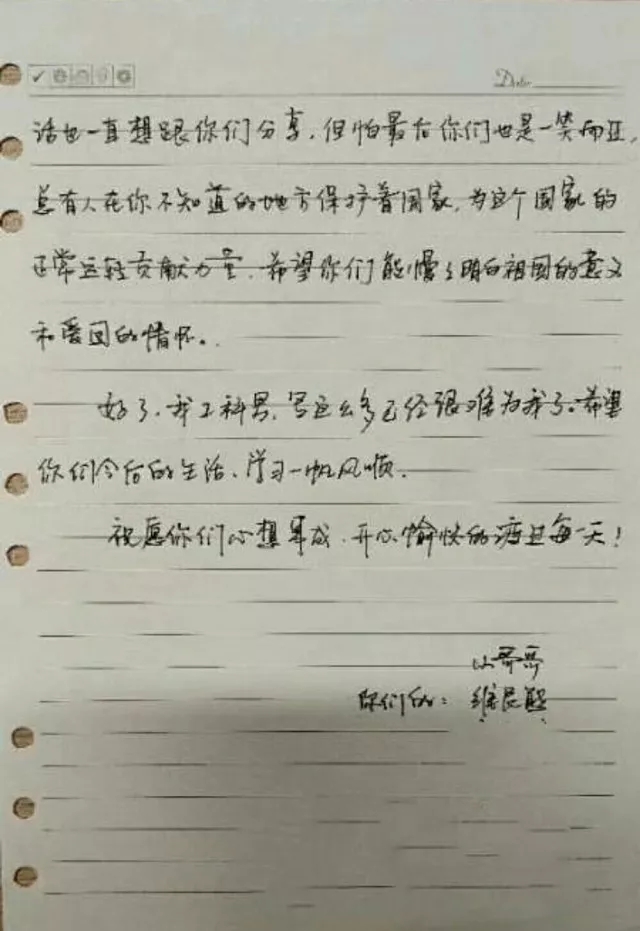 Date
话也一直想跟你们分享,但怕最后你们也是一笑而过,
总有人在你不知道的地方保护着国家,为这个国家的
正常运转贡献力量,希望你们能慢慢明白祖国的意义
和爱国的情怀。
好了,我工科男,写这么多已经很难为我了。希望
你们今后的生活、学习一帆风顺.
祝愿你们心想事成,开心愉快的渡过每一天!
小哥哥
你们的: